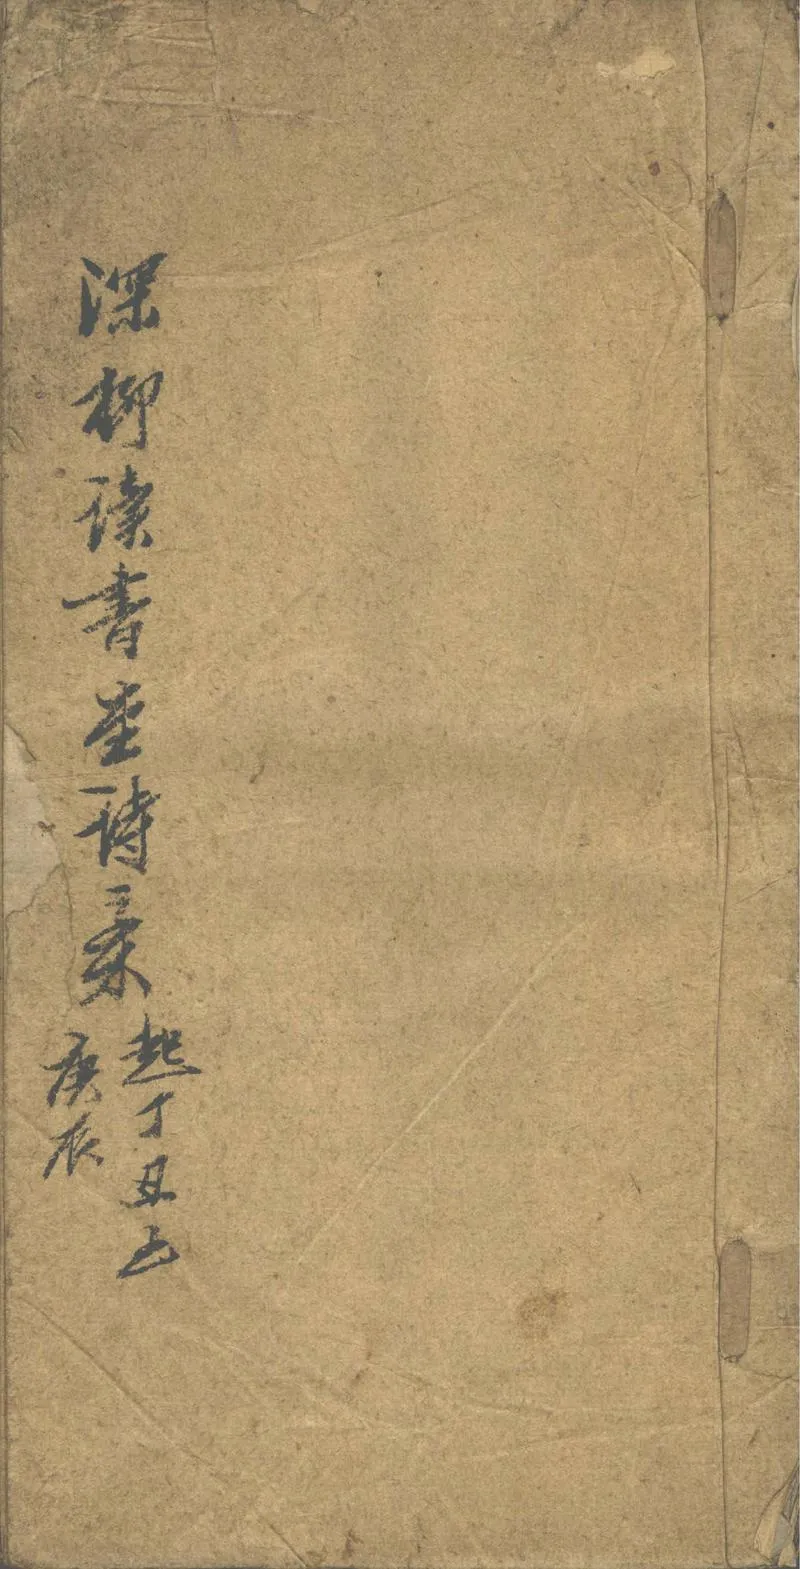 深柳读書堂詩稾
起丁丑止
庚辰